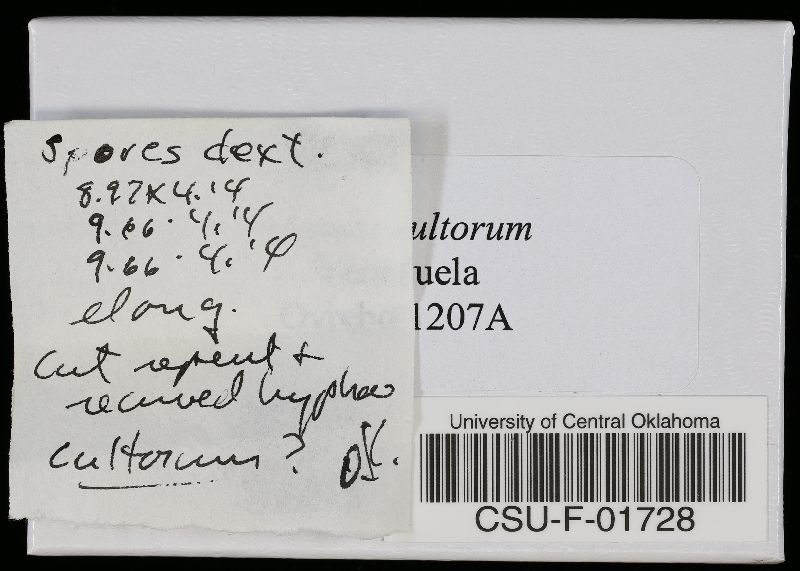 Spores dext.
8.97 x 4.14
9.66 · 4.14
9.66 · 4.14
elong.
Cut repent +
recurved hyphae
cultorum? OK.
ultorum
uela
1207A
University of Central Oklahoma
CSU-F-01728